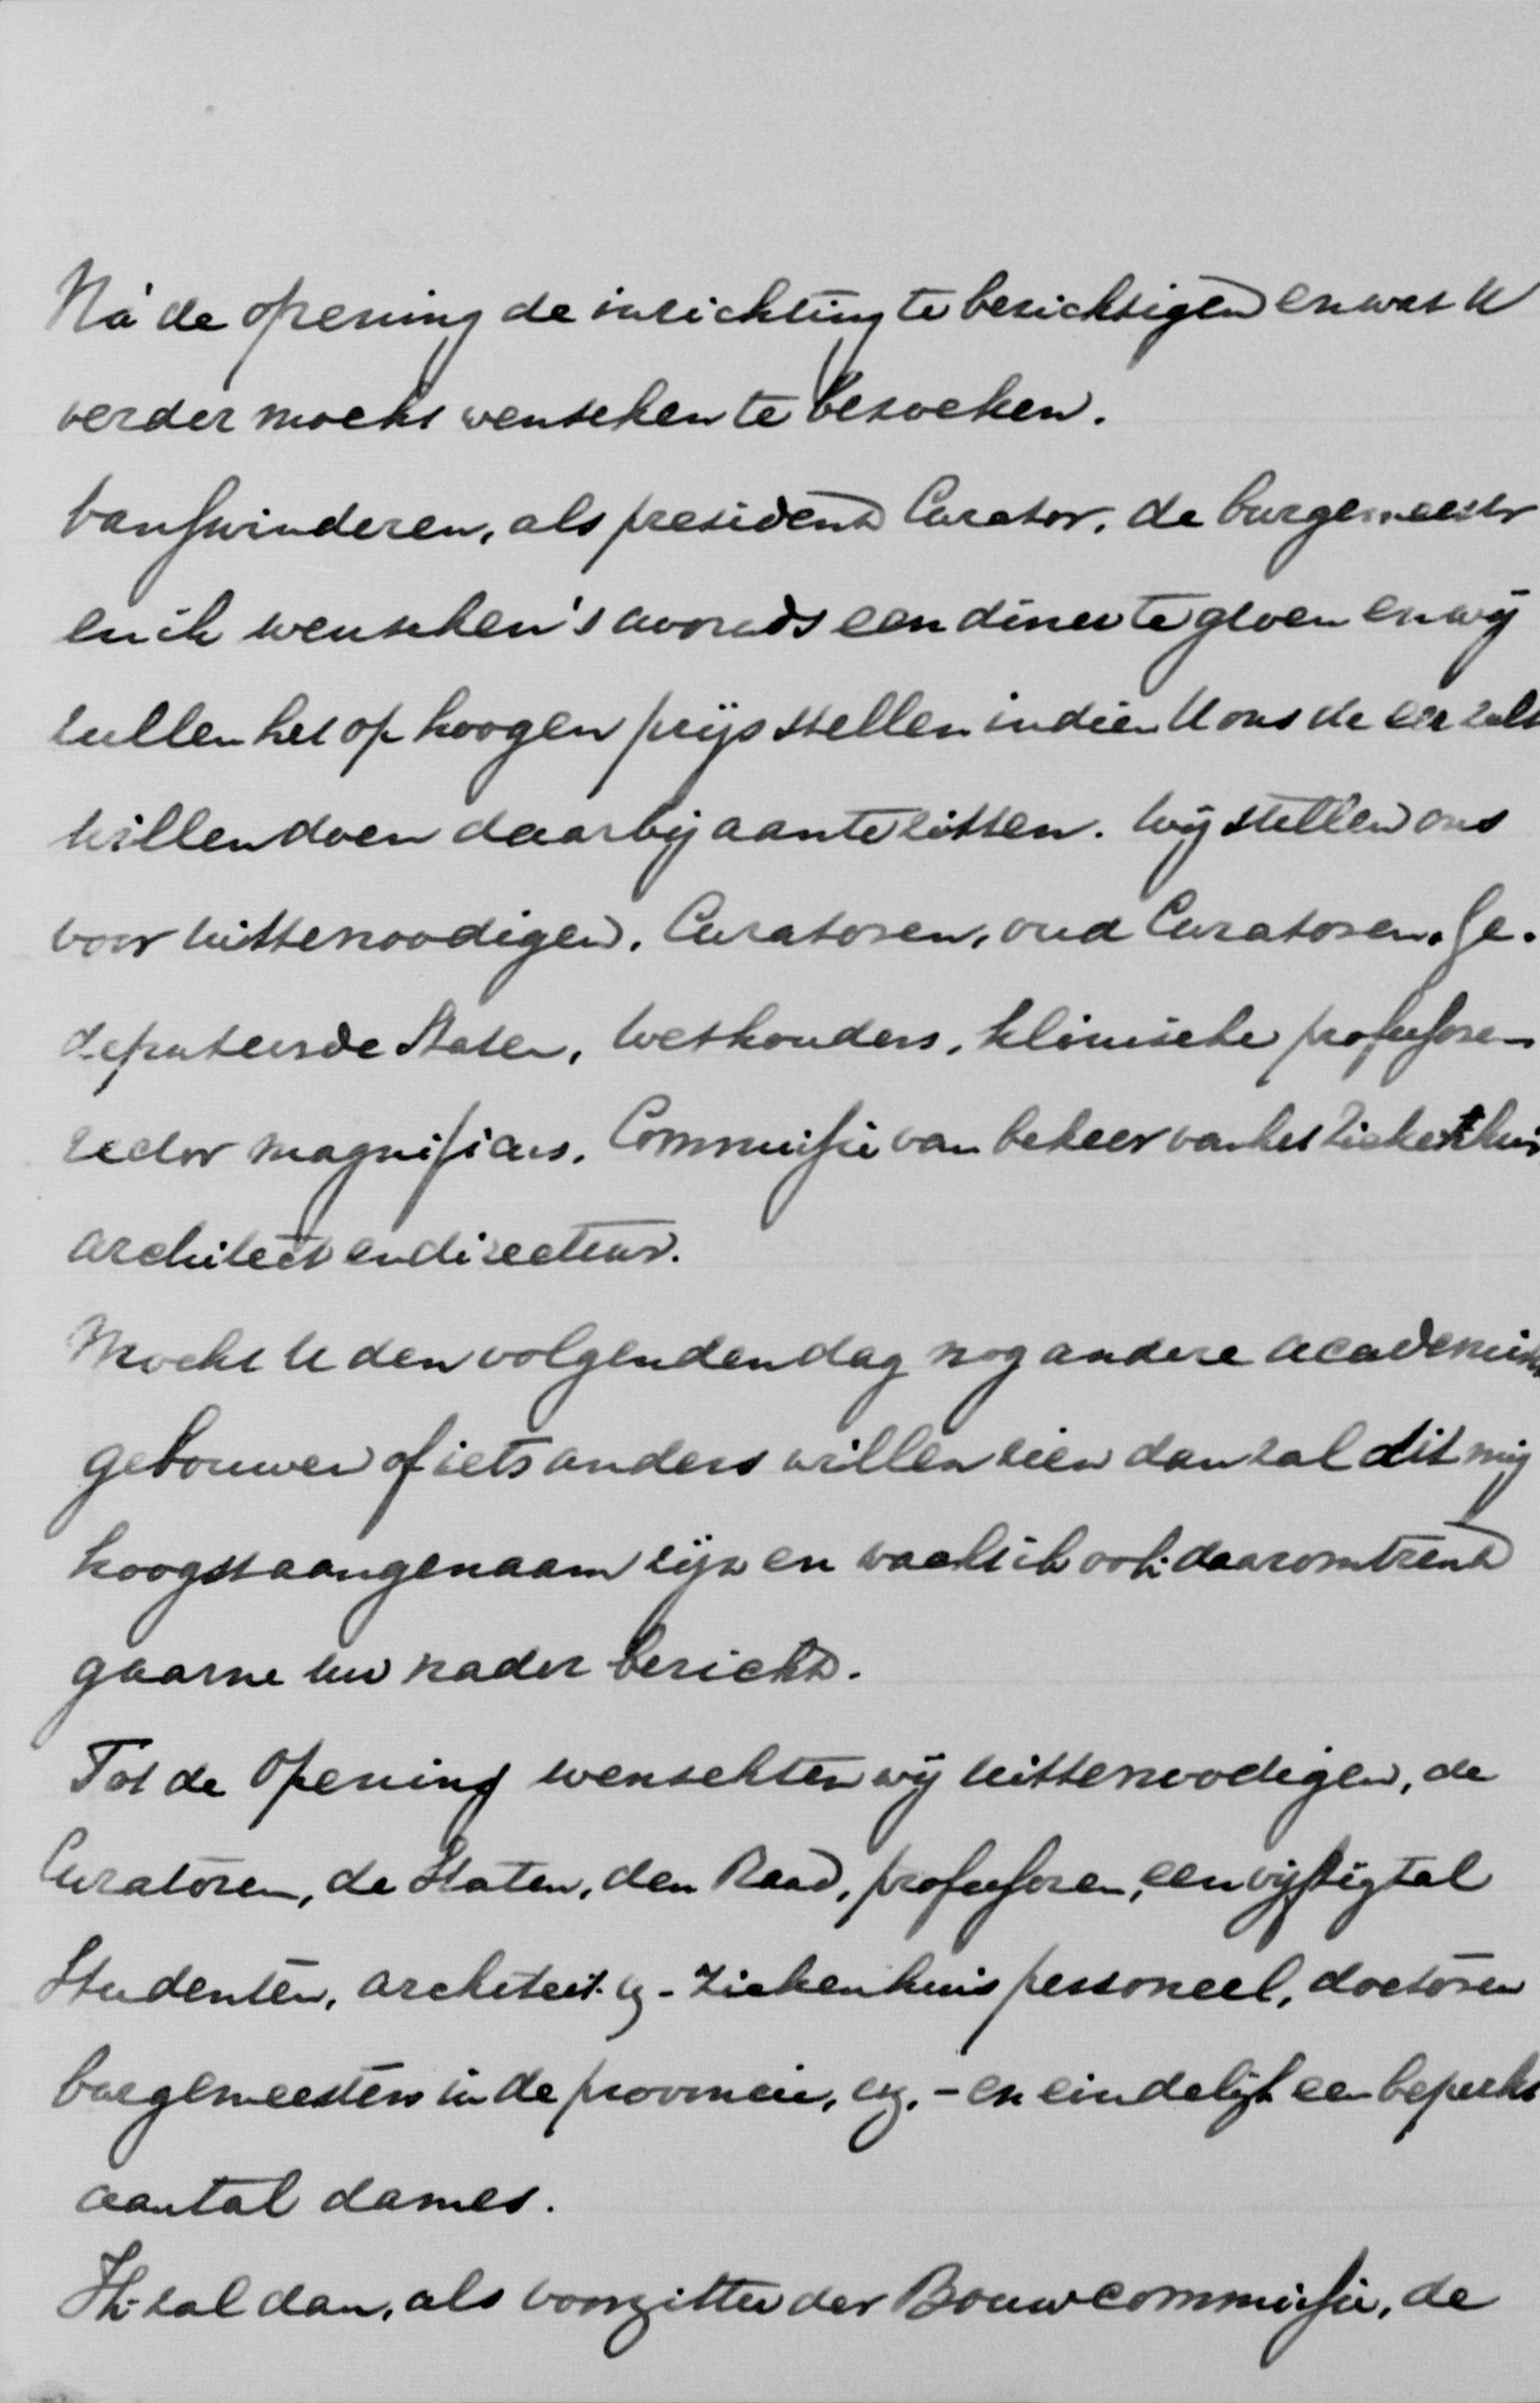 Ná de opening de inrichting te bezichtigen en wat U
verder mocht wenschen te bezoeken.
van Swinderen, als president Curator, de burgemeester
en ik wenschen 's avonds een diner te geven en wij
zullen het op hoogen prijs stellen indien U ons de eer zult
willen doen daarbij aan te zitten. Wij stellen ons
voor uittenoodigen, Curatoren, oud Curatoren, Ge-
deputeerde Staten, Wethouders, klinische professoren
rector magnificus, Commissie van beheer van het Ziekenhuis
architect en directeur.
Mocht U den volgenden dag nog andere academische
gebouwen of iets anders willen zien dan zal dit mij
hoogst aangenaam zijn en wacht ik ook daaromtrent
gaarne uw nader bericht.
Tot de opening wenschten wij uittenoodigen, de
Curatoren, de Staten, den Raad, professoren, een vijftigtal
Studenten, architect. cz - Ziekenhuis personeel, doctoren
burgemeesters in de provincie, cz. - en eindelijk een beperkt
aantal dames.
Ik zal dan, als voorzitter der Bouwcommissie, de